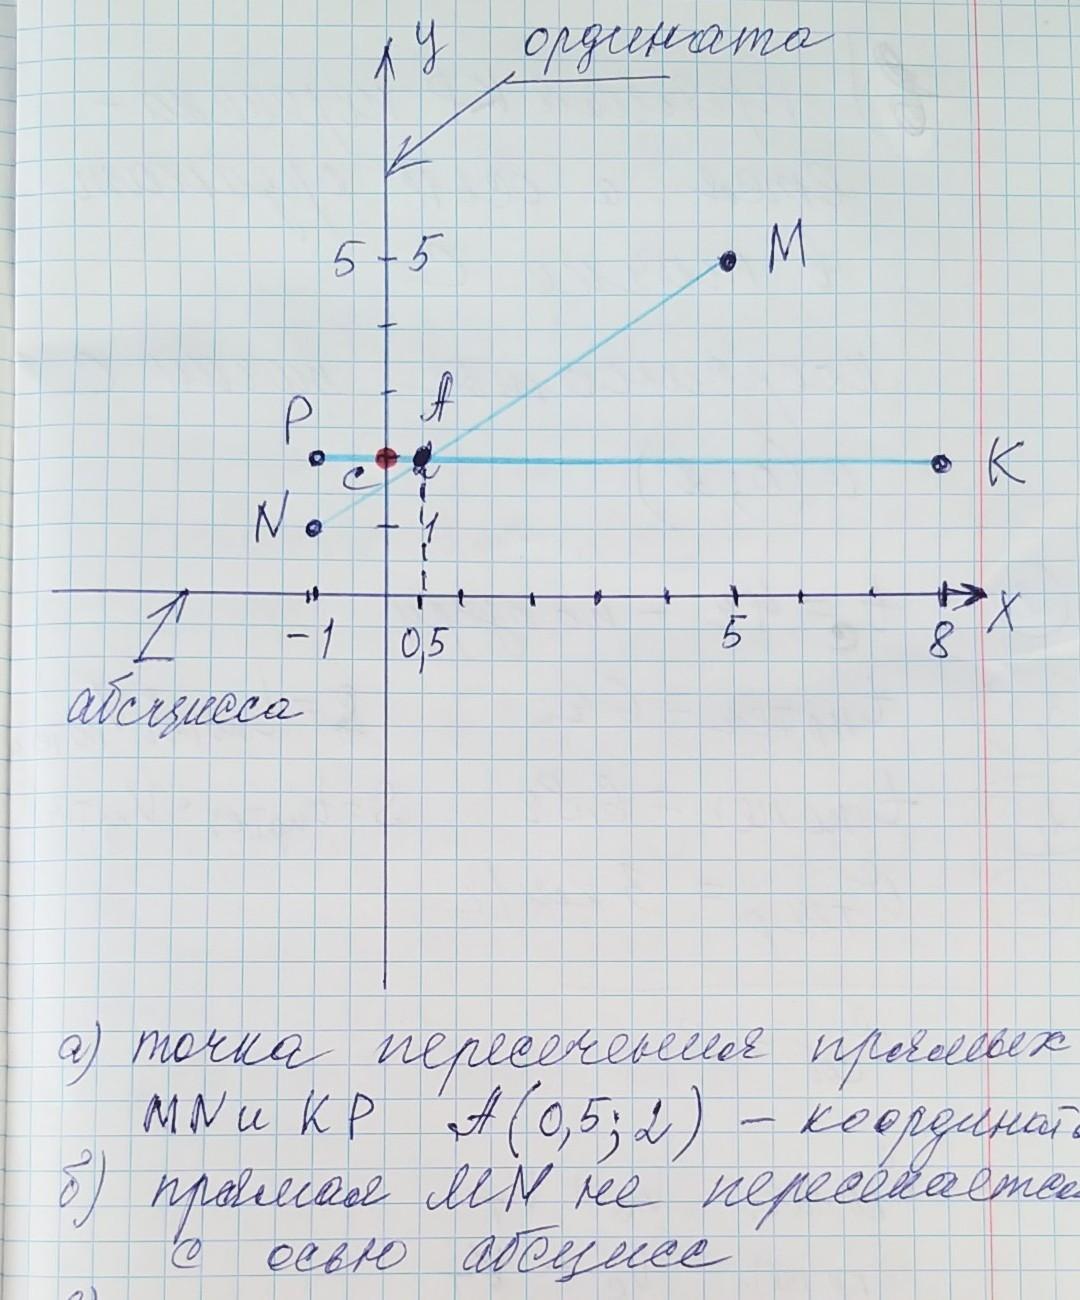 У ордината
5 5
М
Р А
С 2 К
N 1
-1 0,5 5 8 Х
абсцисса
а) точка пересечения прямых
MN и KP A(0,5; 2) – координат
б) прямая MN не пересекается
с осью абсцисс